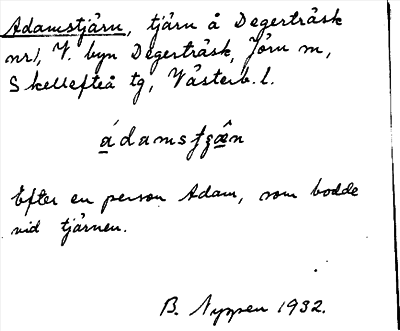 Adamstjärn, tjärn å Degerträsk
nr 1, V. byn Degerträsk, Jörn sn,
Skellefteå tg, Västerb. l.
ádamsʃʒæ̂n
Efter en person Adam, som bodde
vid tjärnen.
B. Nyppen 1932.